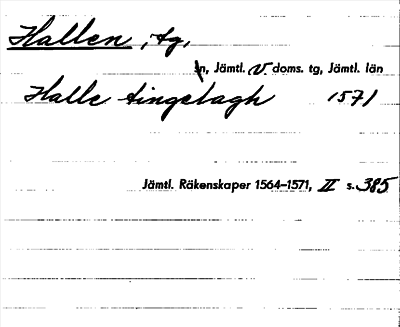 Hallen, tg,
sn, Jämtl. V. doms. tg, Jämtl. län
Halle tingelagh 1571
Jämtl. Räkenskaper 1564–1571, II s. 385